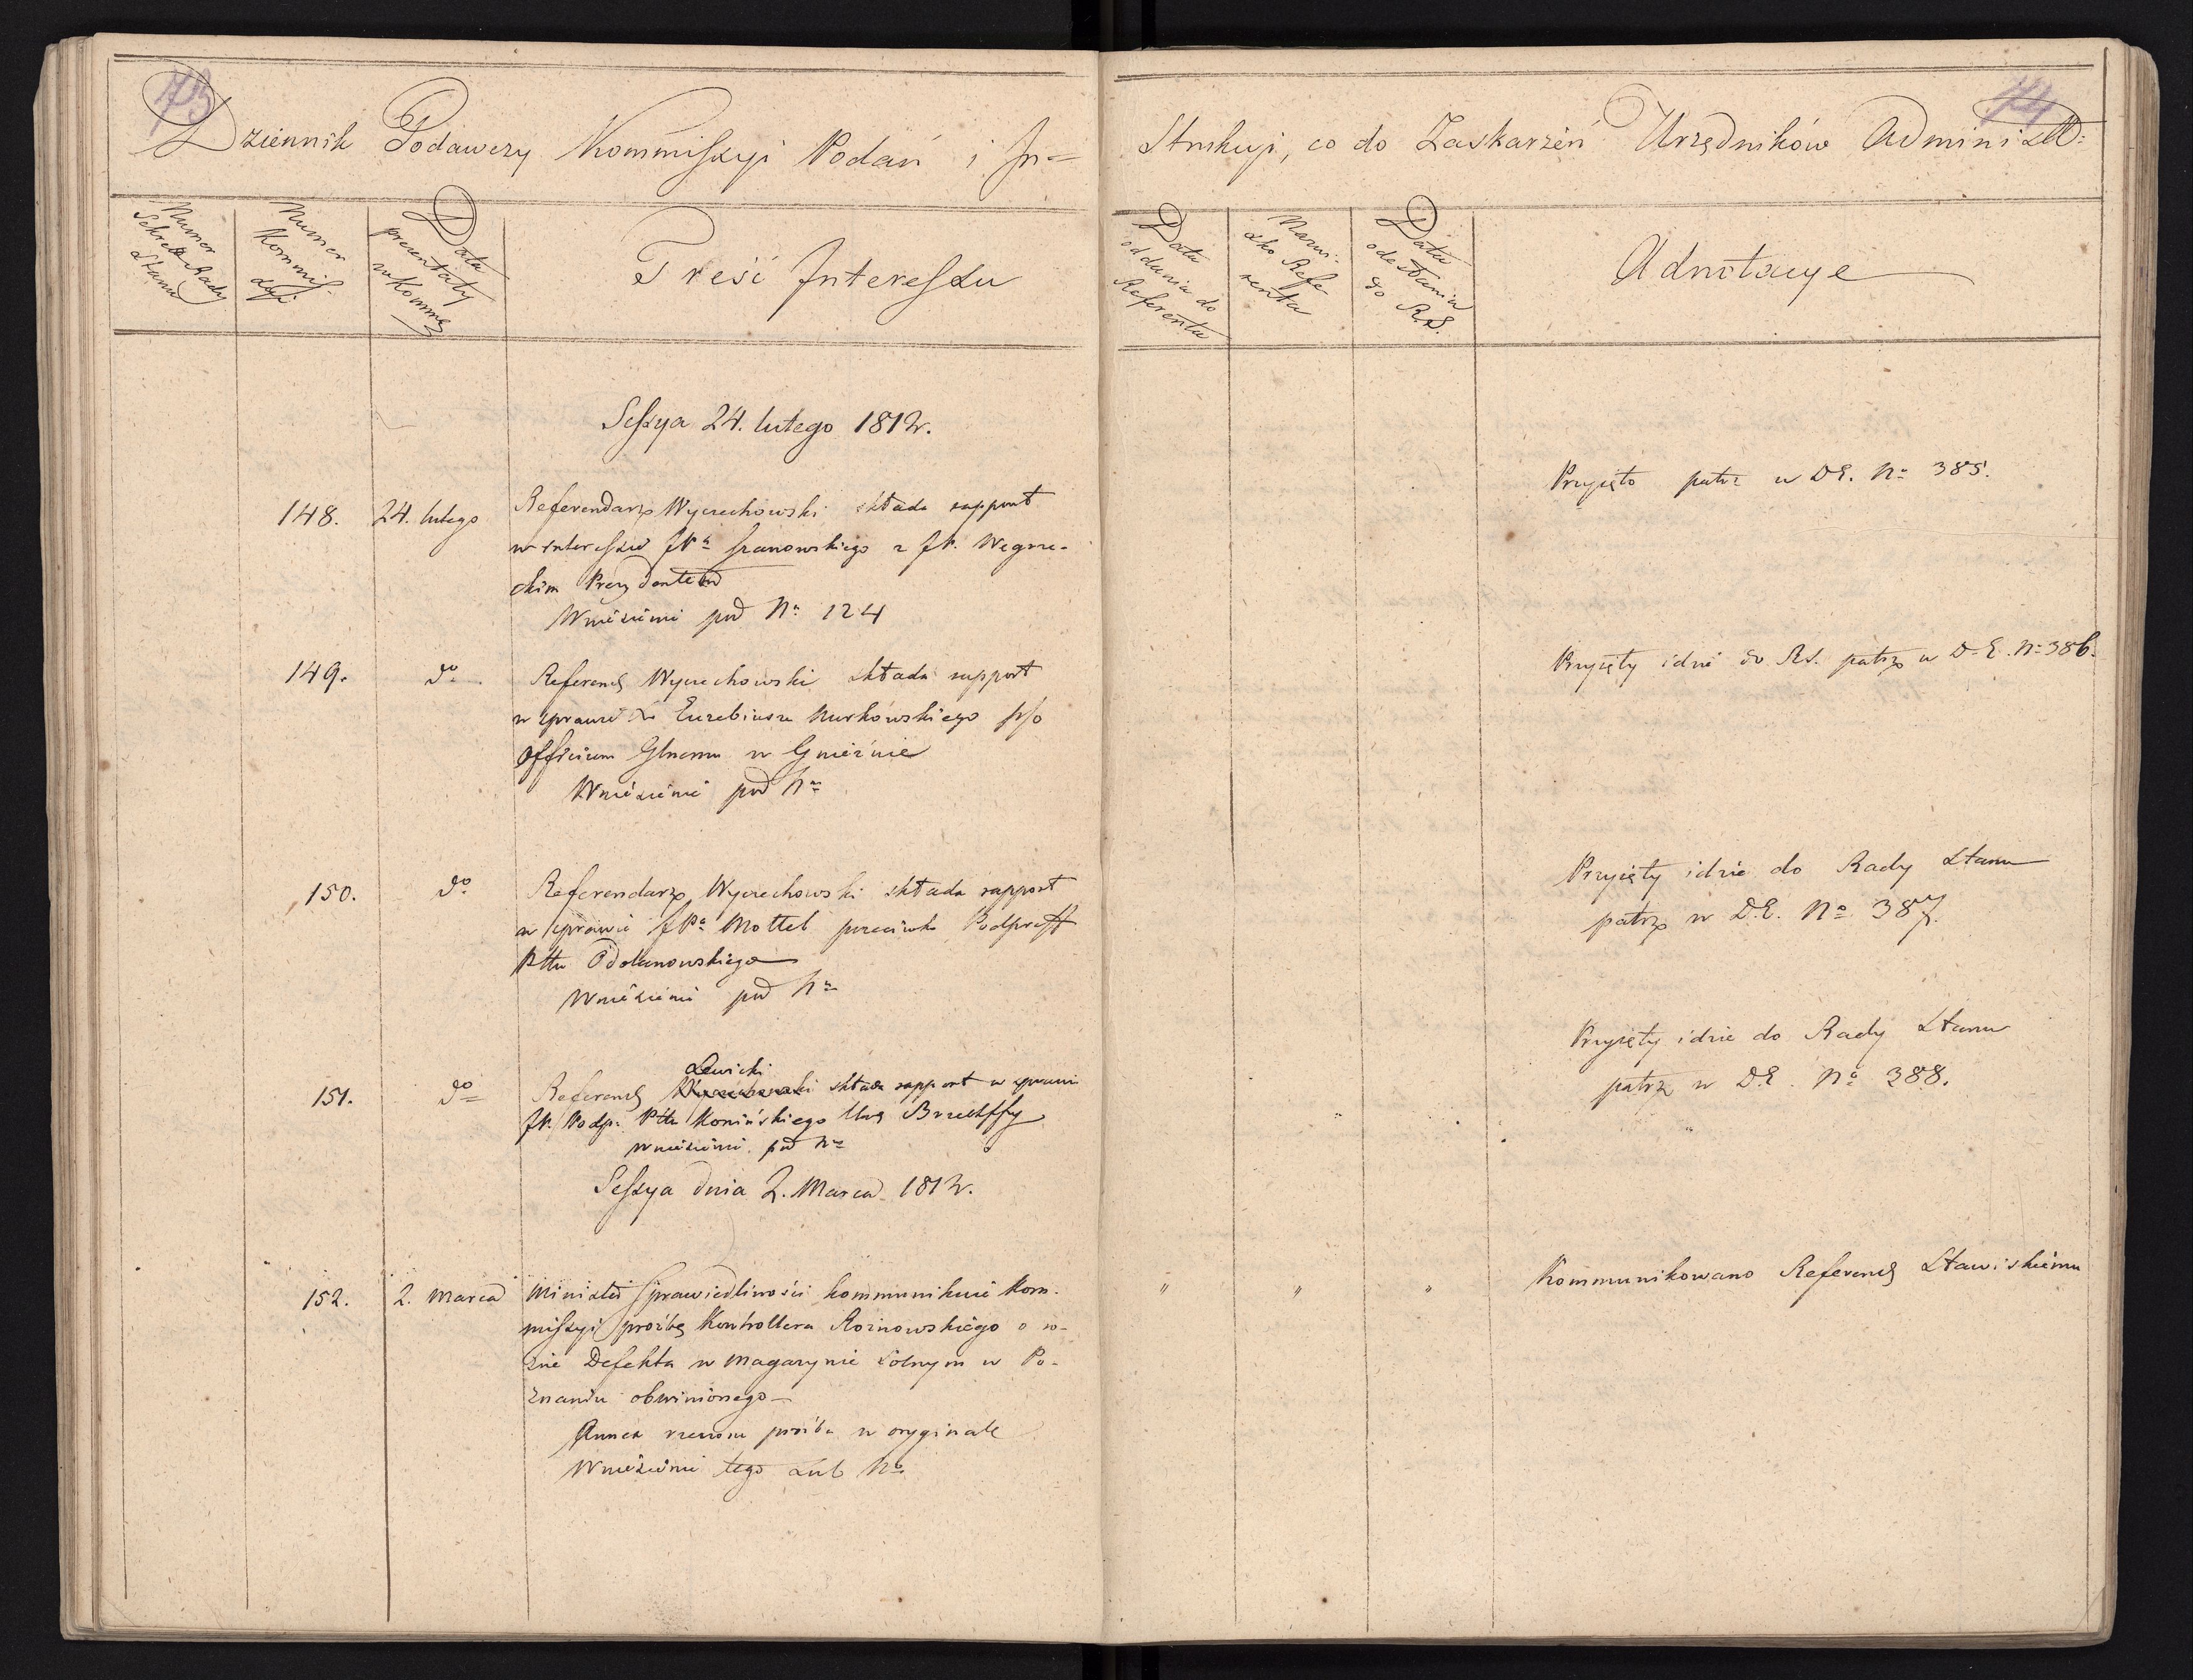 73
74
Dziennik Podawczy Kommissyi Podań i In=
strukcji, co do Zaskarżeń Urzędników Administr:
Numer Sekret. Rady Stanu
Numer Kommissyi
Data prezentaty w Kommis
Treść Interessu
Data oddania do Referenta
Nazwisko Referenta
Data odesłania do R.S.
Adnotacye
Sessya 24. lutego 1812r.
148. 24. lutego
Referendarz Wyczechowski składa rapport
w interessie JPa Szanowskiego z JP. Węgrze-
ckim Prezydentem
Wniesienie pod No 124
Przyjęto patrz w DE. No 385.
149. do
Referend. Wyczechowski składa rapport
w sprawie Euzebiusza Murkowskiego p/o
Officium Glnemu w Gnieźnie
Wniesienie pod No
Przyjęty idzie do RS. patrz w D.E. No 386.
150. do
Referendarz Wyczechowski składa rapport
w sprawie JPa Mottel przeciwko Podpreff
Pttu Odolanowskiego
Wniesienie pod No
Przyjęty idzie do Rady Stanu
patrz w D.E. No 387.
151. do
Lewicki
Referend. Wyczechowski składa rapport w sprawie
JP. Podp. Pttu Konińskiego Brzechffy
Wniesienie pod No
Przyjęty idzie do Rady Stanu
patrz w D.E. No 388.
Sessya dnia 2. Marca 1812r.
152. 2. Marca
Minister Sprawiedliwości kommunikuie Kom-
missyi prośbę Kontrollera Roznowskiego o ró-
żne Defekta w magazynie solnym w Po-
znaniu obwinionego
Annex rzeczona prośba w oryginale
Wniesienie tego sub No
" " "
Kommunikowano Referend. Stawiskiemu